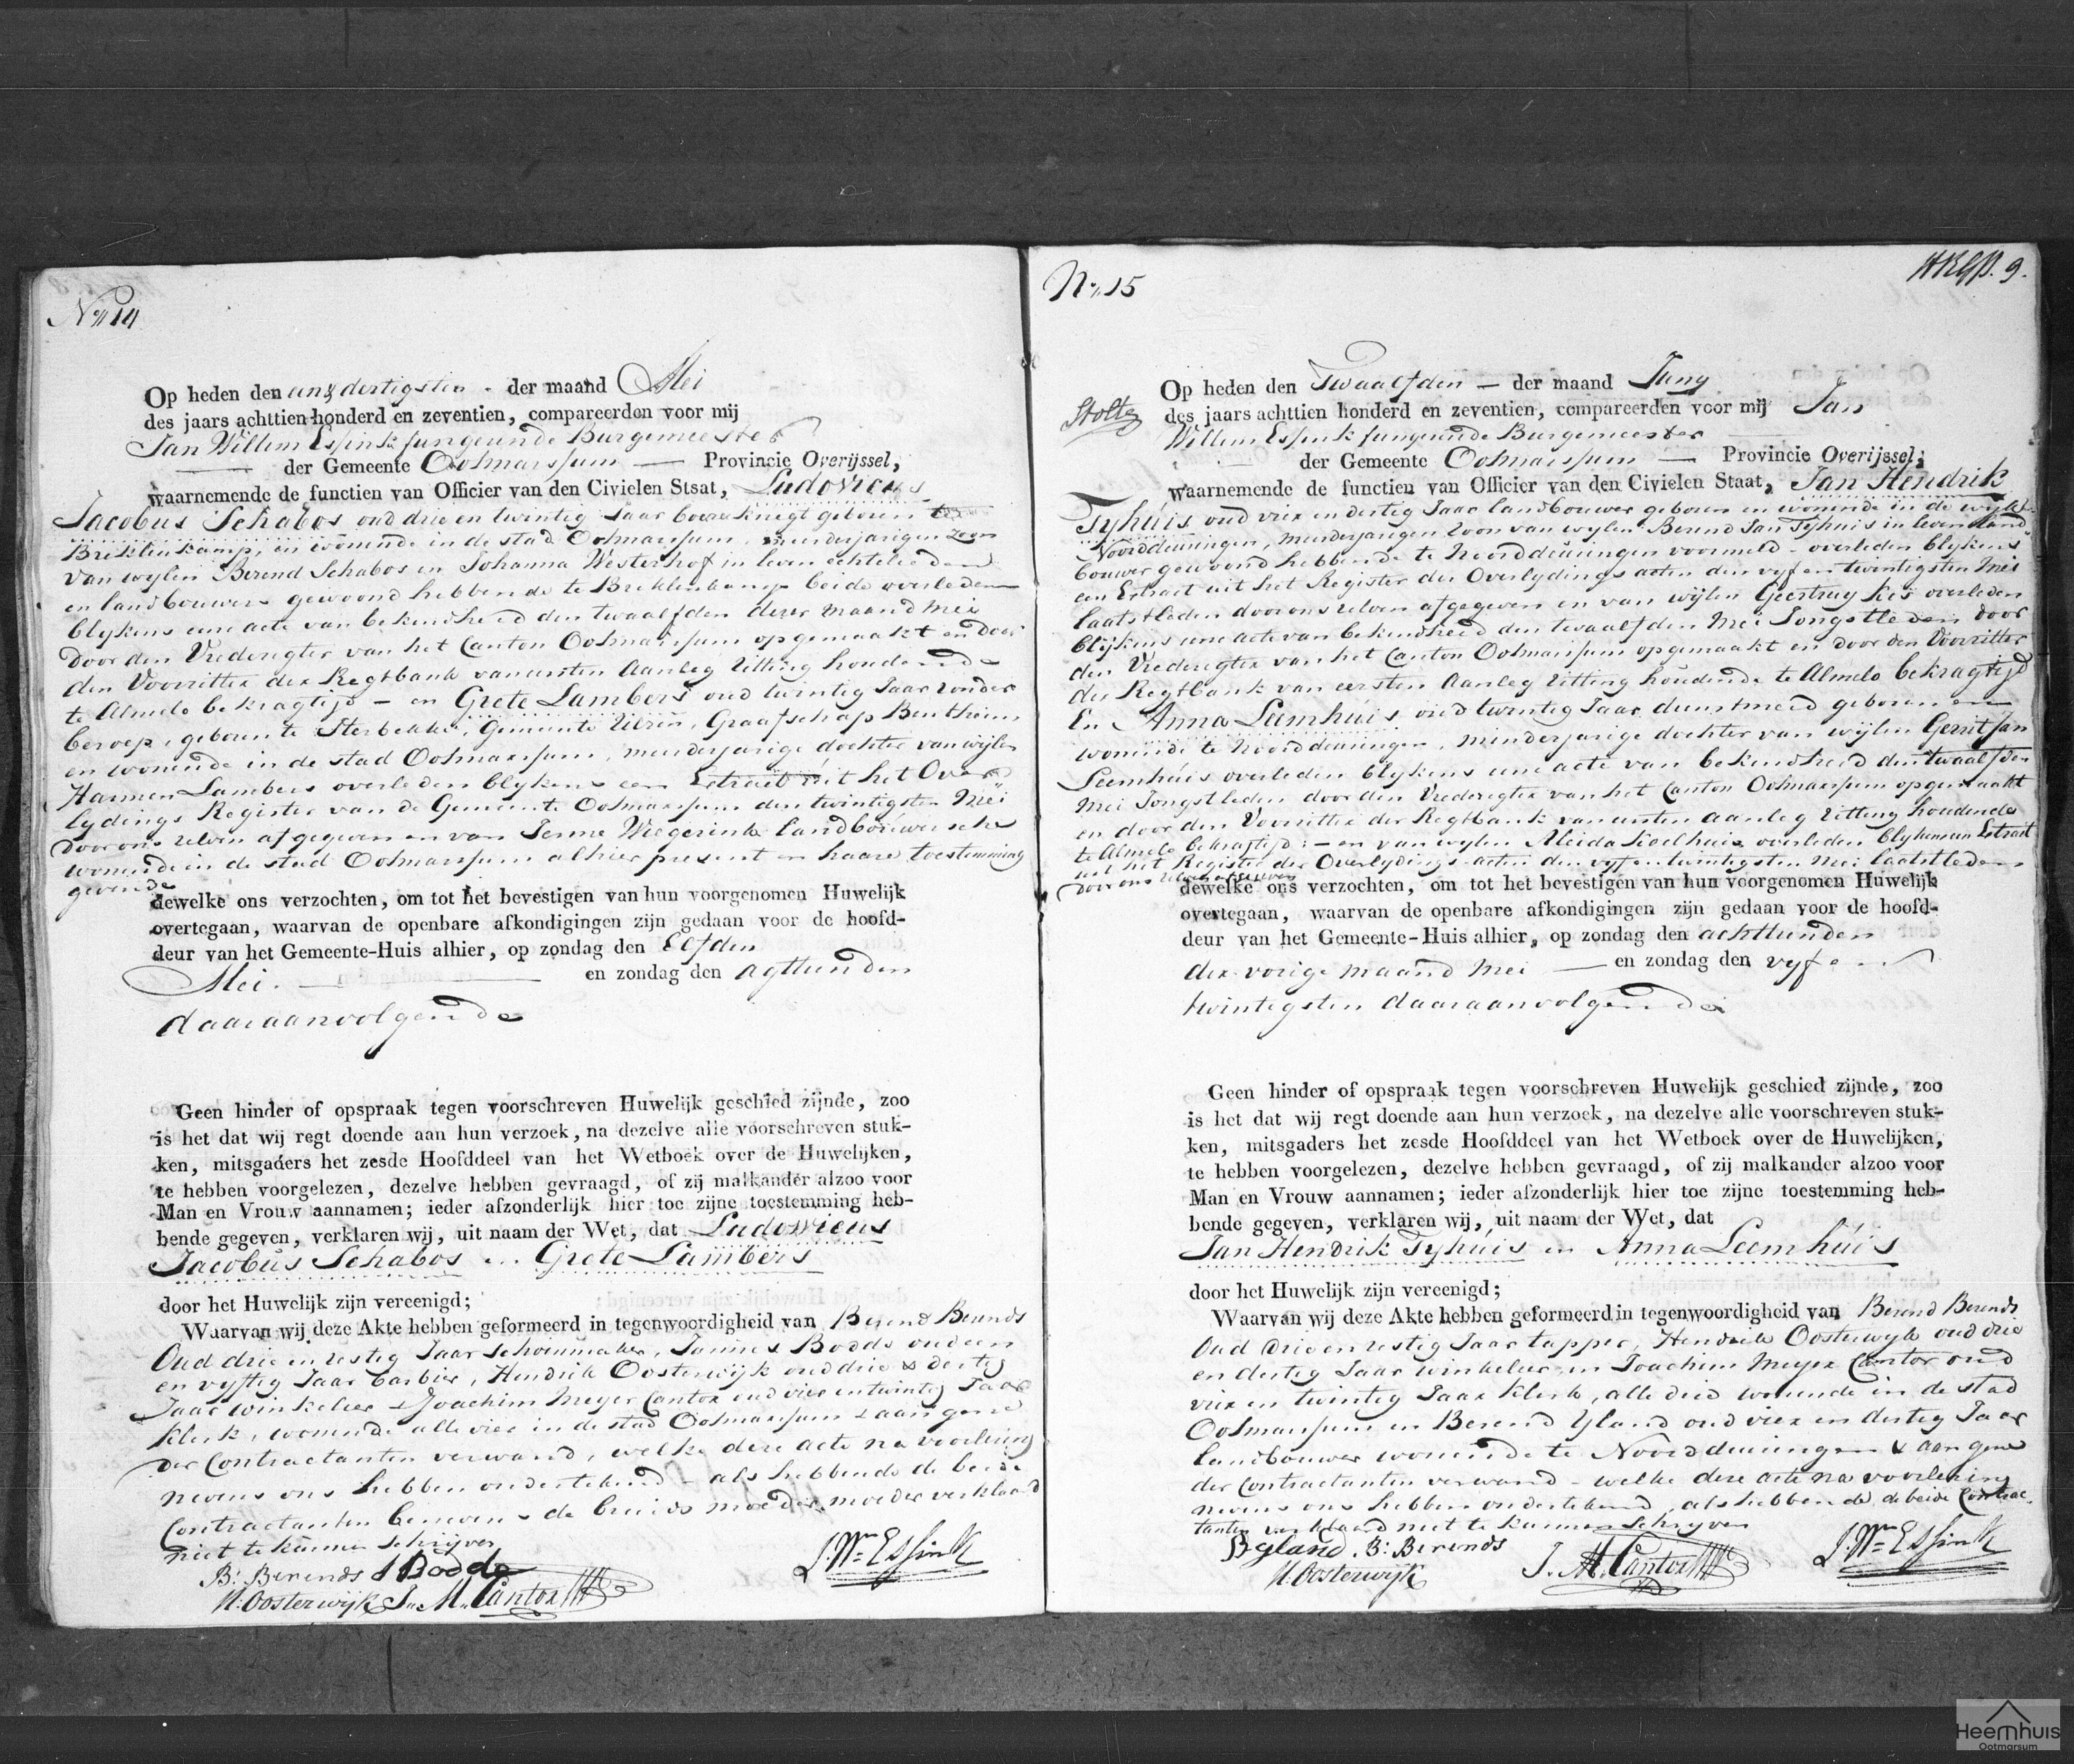 No 14
Op heden den een & dertigsten - der maand Mei
des jaars achttien-honderd en zeventien, compareerden voor mij
Jan Willem Essink fungeerende Burgemeester
der Gemeente Ootmarssum — Provincie Overijssel,
waarnemende de functien van Officier van den Civielen Stsat, Ludovicus
Jacobus Schabos oud drie en twintig Jaar boereknegt geboren te
Breklinkamp, en wonende in de stad Ootmarssum, meerderjarigen zoon
van wylen Berend Schabos en Johanna Westerhof in leven echtelieden
en landbouwers gewoond hebbende te Breklenkamp beide overleden
blykens eene acte van bekendheid den twaalfden dezer maand Mei
door den Vrederegter van het Canton Ootmarssum opgemaakt en door
den Voorzitter der Regtbank van eersten Aanleg Zitting houdende
te Almelo bekragtijd - en Grete Lambers oud twintig Jaar zonder
beroep, geboren te Gemeente Ulzen, Graafschap Bentheim
en wonende in de stad Ootmarssum, minderjarige dochter van wylen
Harmen Lambers overleden blykens een Extract uit het Over
lydings Register van de Gemeente Ootmarssum den twintigsten Mei
door ons zelven afgegeven en van Jenne Wiegerink Landbouwersche
wonende in de stad Ootmarssum alhier present en haare toestemming
gevende
dewelke ons verzochten, om tot het bevestigen van hun voorgenomen Huwelijk
overtegaan, waarvan de openbare afkondigingen zijn gedaan voor de hoofd-
deur van het Gemeente-Huis alhier, op zondag den Elfden
Mei. — en zondag den agttienden
daaraanvolgende
Geen hinder of opspraak tegen voorschreven Huwelijk geschied zijnde, zoo
is het dat wij regt doende aan hun verzoek, na dezelve alle voorschreven stuk-
ken, mitsgaders het zesde Hoofddeel van het Wetboek over de Huwelijken,
te hebben voorgelezen, dezelve hebben gevraagd, of zij malkander alzoo voor
Man en Vrouw aannamen; ieder afzonderlijk hier toe zijne toestemming heb-
bende gegeven, verklaren wij, uit naam der Wet, dat Ludovicus
Jacobus Schabos en Grete Lambers
door het Huwelijk zijn vereenigd;
Waarvan wij deze Akte hebben geformeerd in tegenwoordigheid van Berend Berends
Oud drie en zestig Jaar schoenmaker, Jannes Bodde oud een
en vyftig Jaar barbier, Hendrik Oosterwijk oud drie & dertig
Jaar winkelier & Joachim Meyer Cantor oud vier en twintig Jaar
klerk, wonende alle vier in de stad Ootmarssum & aan geene
der Contractanten verwand, welke deze acte na voorlezing
nevens ons hebben ondertekend - als hebbende de beide
Contractanten benevens de bruids moeder moeder verklaard
niet te kunnen schrijven
B: Berends J Bodde
J. Wm Essink
H: Oosterwijk J. M. Cantor
No 15
9.
Stolte
Op heden den Twaalfden — der maand Juny
des jaars achttien honderd en zeventien, compareerden voor mij Jan
Willem Essink fungeerende Burgemeester
der Gemeente Ootmarssum — Provincie Overijssel;
waarnemende de functien van Officier van den Civielen Staat, Jan Hendrik
Tyhuis oud vier en dertig Jaar landbouwer geboren en wonende in de wykt
Noorddeuningen, meerderjarigen zoon van wylen Berend Jan Tyhuis in leven land
bouwer gewoond hebbende te Noorddeuningen voormeld - overleden blykens
een Extract uit het Register der Overlydings acten den vyf en twintigsten Mei
laatstleden door ons zelven afgegeven en van wylen Geestruy Kes overleden
blijkens eene acte van bekendheid den twaalfden Mei Jongstleden door
den Vrederegter van het Canton Ootmarssum opgemaakt en door den Voorzitter
der Regtbank van eersten Aanleg Zitting houdende te Almelo bekragtijd
En Anna Leemhuis oud twintig Jaar dienstmeid geboren en
wonende te Noorddeuningen, minderjarige dochter van wylen Gerrit Jan
Leemhuis overleden blykens eene acte van bekendheid den twaalfden
Mei Jongstleden door den Vrederegter van het Canton Ootmarssum opgemaakt
en door den Voorzitter der Regtbank van eersten aanleg Zitting houdende
te Almelo bekragtijd: - en van wylen Aleida Koelhuis overleden blykens een Extract
uit het Register der Overlydings acten den vyf en twintigsten Mei laatstleden
door ons zelven afgegeven
dewelke ons verzochten, om tot het bevestigen van hun voorgenomen Huwelijk
overtegaan, waarvan de openbare afkondigingen zijn gedaan voor de hoofd-
deur van het Gemeente-Huis alhier, op zondag den achttienden
der vorige maand Mei — en zondag den vyf en
twintigsten daaraanvolgende
Geen hinder of opspraak tegen voorschreven Huwelijk geschied zijnde, zoo
is het dat wij regt doende aan hun verzoek, na dezelve alle voorschreven stuk-
ken, mitsgaders het zesde Hoofddeel van het Wetboek over de Huwelijken,
te hebben voorgelezen, dezelve hebben gevraagd, of zij malkander alzoo voor
Man en Vrouw aannamen; ieder afzonderlijk hier toe zijne toestemming heb-
bende gegeven, verklaren wij, uit naam der Wet, dat
Jan Hendrik Tyhuis en Anna Leemhuis
door het Huwelijk zijn vereenigd;
Waarvan wij deze Akte hebben geformeerd in tegenwoordigheid van Berend Berends
Oud drie en zestig Jaar tapper, Hendrik Oosterwyk oud drie
en dertig Jaar winkelier en Joachim Meyer Cantor oud
vier en twintig Jaar klerk, alle drie wonende in de stad
Ootmarssum en Berend Yland oud vier en dertig Jaar
landbouwer wonende te Noorddeuningen & aan geene
der Contractanten verwand - welke deze acte na voorlezing
nevens ons hebben ondertekend, als hebbende de beide Contrac-
tanten verklaard niet te kunnen schryven
B Yland. B: Berends
H. Oosterwijk J. M. Cantor J. Wm Essink
Heemhuis
Ootmarsum